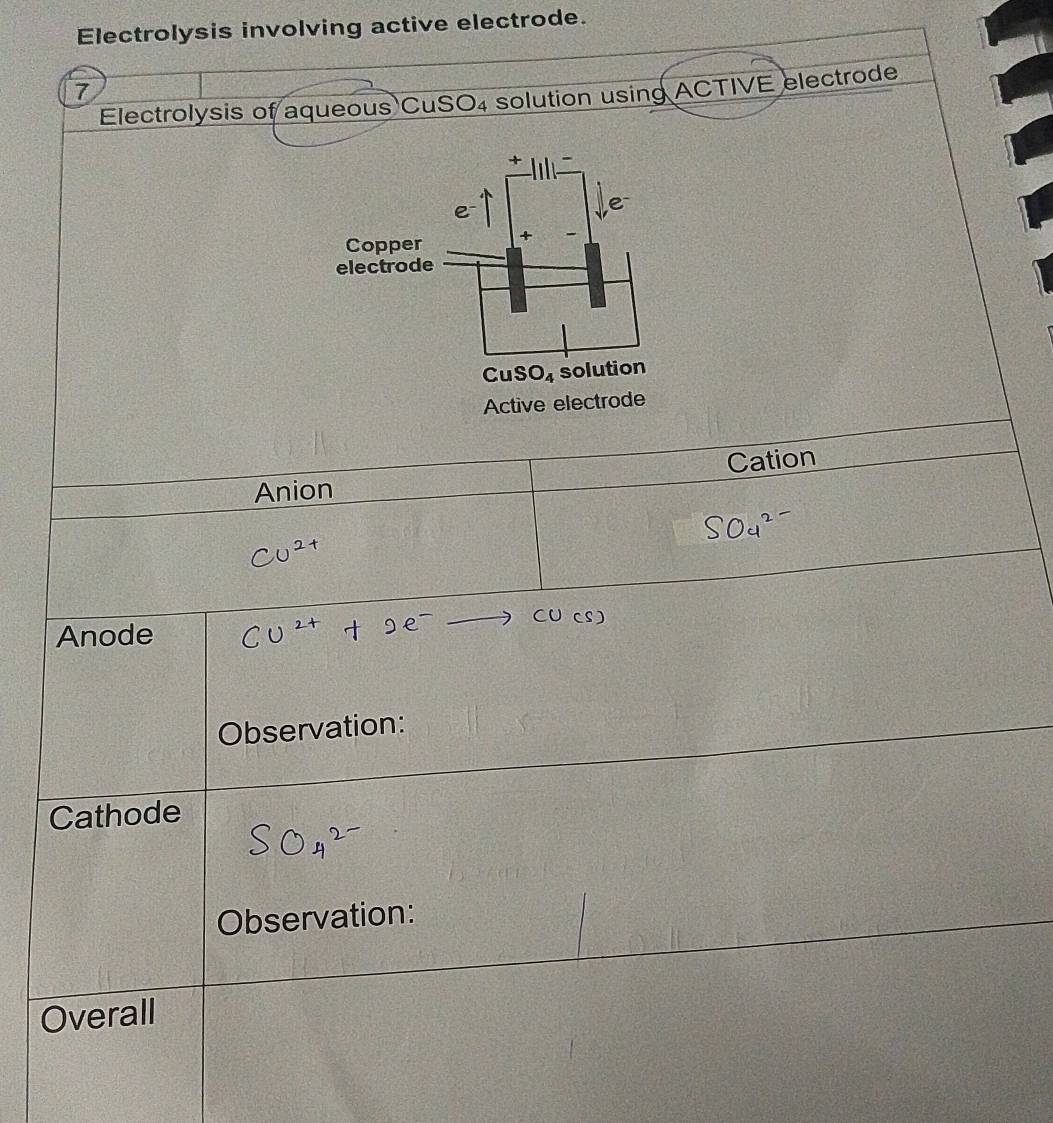 Electrolysis involving active electrode.
7
Electrolysis of aqueous CuSO₄ solution using ACTIVE electrode
+ -
e⁻↑ ↓e⁻
+ -
Copper
electrode
CuSO₄ solution
Active electrode
Anion Cation
Cu²⁺ SO₄²⁻
Anode Cu²⁺ + 2e⁻ → Cu (s)
Observation:
Cathode
SO₄²⁻
Observation:
Overall